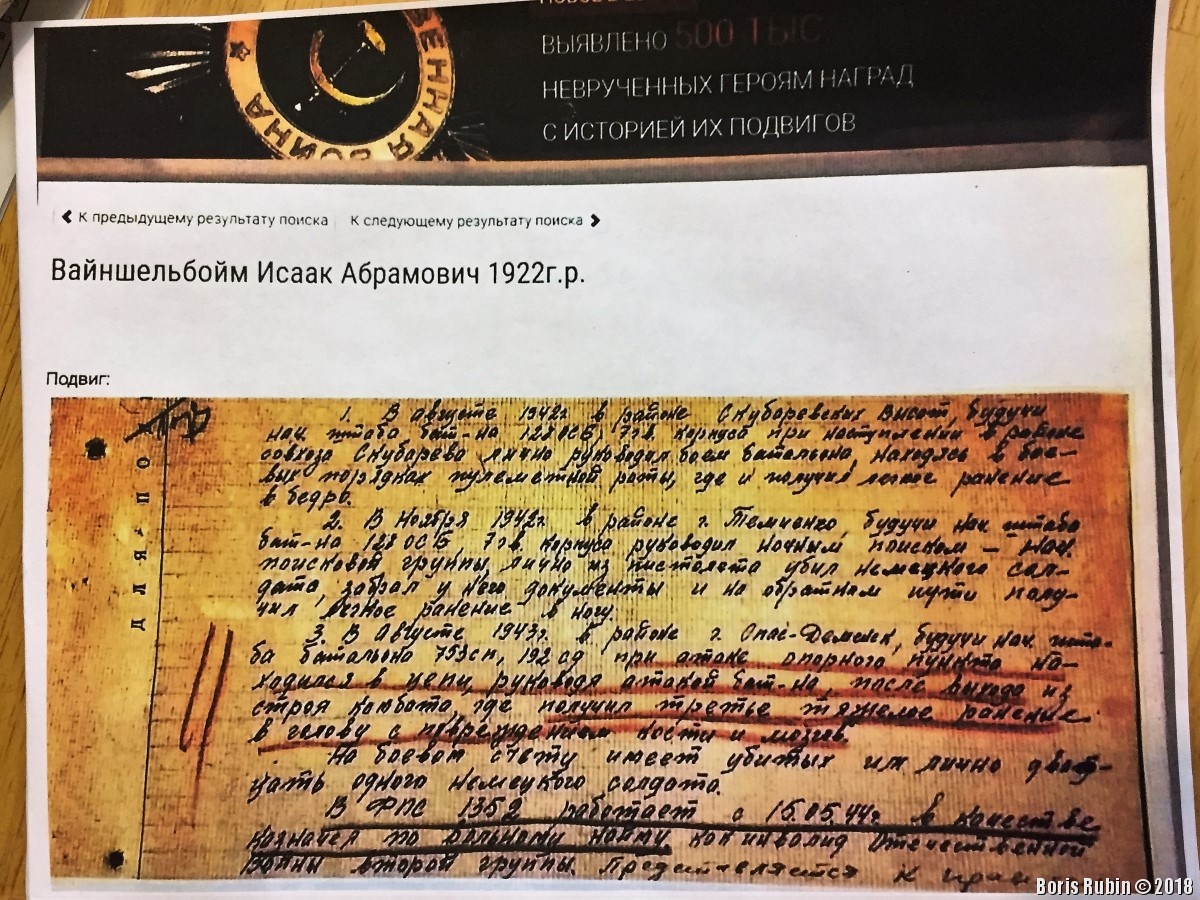 ВЫЯВЛЕНО 500 ТЫС
НЕВРУЧЕННЫХ ГЕРОЯМ НАГРАД
С ИСТОРИЕЙ ИХ ПОДВИГОВ
ВЕННАЯ ВОЙНА
К предыдущему результату поиска К следующему результату поиска
Вайншельбойм Исаак Абрамович 1922г.р.
Подвиг:
ДЛЯ ПО
1. В августе 1942г. в районе Скубаревских высот, будучи
нач. штаба бат-на 128 ОСБ, 7 гв. корпуса при наступлении в районе
совхоза Скубарево лично руководил боем батальона, находясь в бое-
вых порядках пулеметной роты, где и получил легкое ранение
в бедро.
2. В Ноября 1942г. в районе г. Темченко, будучи нач. штаба
бат-на 128 ОСБ 7 гв. корпуса руководил ночным поиском – нач.
поисковой группы, лично из пистолета убил немецкого сол-
дата, забрал у него документы и на обратном пути полу-
чил легкое ранение в ногу.
3. В Августе 1943г. в районе г. Спас-Деменск, будучи нач. шта-
ба батальона 753сп, 192 сд при атаке опорного пункта на-
ходился в цепи, руководя атакой бат-на, после выхода из
строя комбата, где получил третье тяжелое ранение
в голову с повреждением кости и мозгов.
На боевом счету имеет убитых им лично двад-
цать одного немецкого солдата.
В ФПС 1352 работает с 15.05.44г. в качестве
казначея по вольному найму как инвалид Отечественной
Войны второй группы. Представляется к
Boris Rubin © 2018